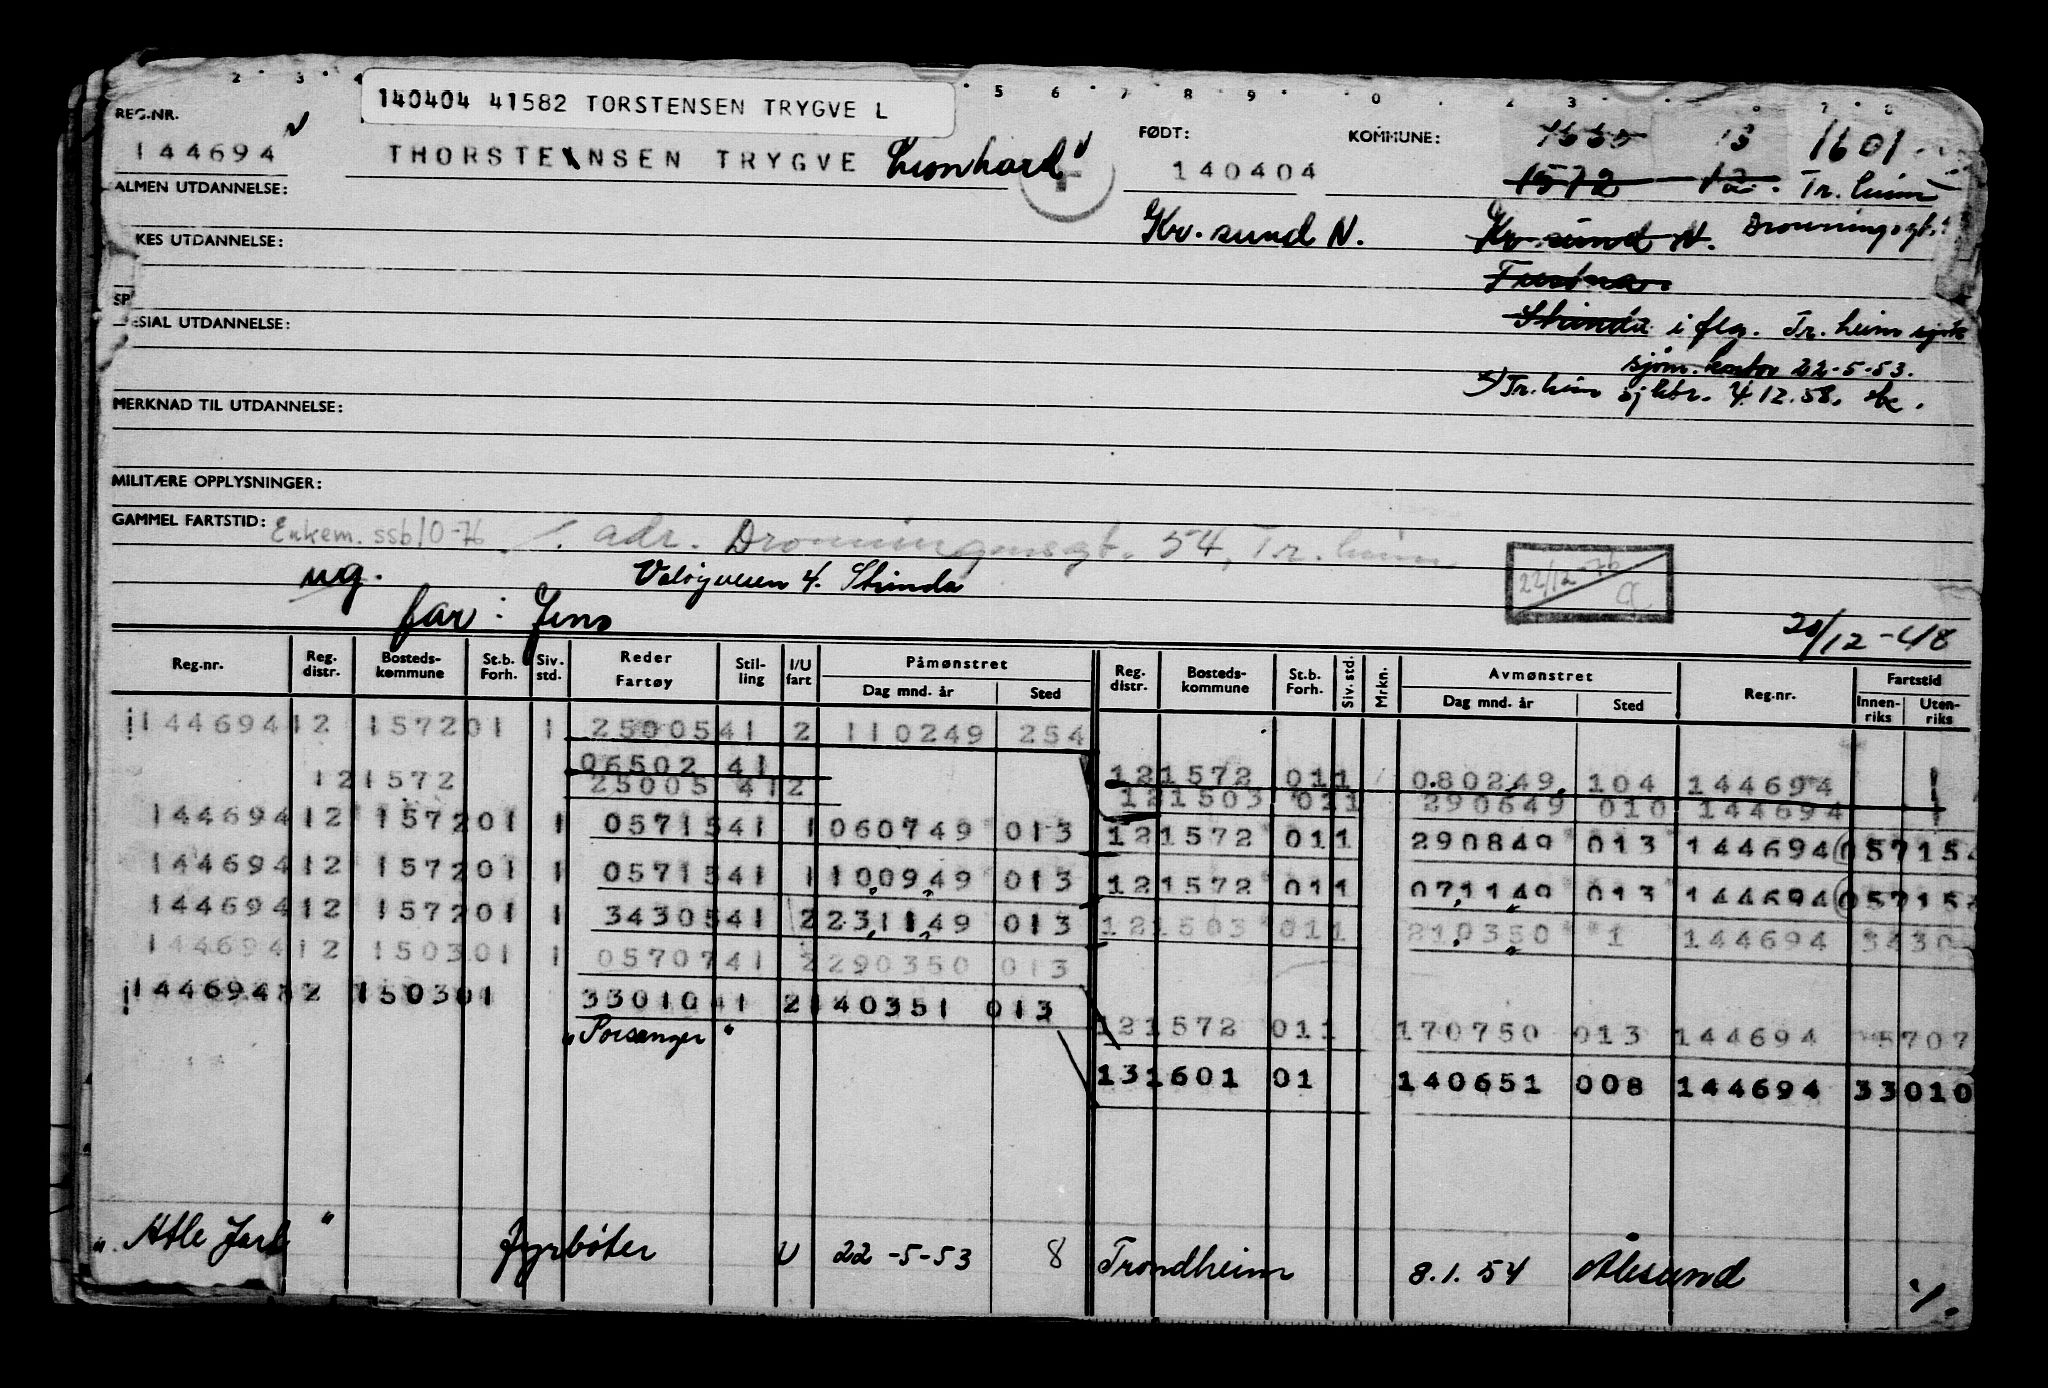 140404 41582 TORSTENSEN TRYGVE L
REG.NR. FØDT: KOMMUNE:
144694 THORSTENSEN TRYGVE Leonhard 140404 1601
1572 Tr.heim
ALMEN UTDANNELSE:
Kr.sund N. Kr.sund N. Dronningsgt.
KES UTDANNELSE:
Tustna.
SP
ESIAL UTDANNELSE: Strinda i flg. Tr.heim
sjøm.kontor 22-5-53.
Tr.heim sj ktr. 4.12.58.
MERKNAD TIL UTDANNELSE:
MILITÆRE OPPLYSNINGER:
GAMMEL FARTSTID: Enkem. ssb 10-76 adr. Dronningensgt. 54, Tr.heim
ug. Valøyveien 4. Strinda 22/12-76
far: Jens 20/12-48
Reg.nr. Reg. distr. Bosteds-kommune St.b. Forh. Siv. std. Reder Fartøy Stil-ling I/U fart Påmønstret Dag mnd. år Sted Reg. distr. Bosteds-kommune St.b. Forh. Siv. std. Mrkn. Avmønstret Dag mnd. år Sted Reg.nr. Fartstid Innen-riks Uten-riks
144694 12 1572 01 1 25005 41 2 110249 254
06502 41 12 1572 01 1 080249 104 144694
12 1572 25005 41 2 12 1503 01 1 290649 010 144694
144694 12 1572 01 1 05715 41 1 060749 013 12 1572 01 1 290849 013 144694 05715
144694 12 1572 01 1 05715 41 1 100949 013 12 1572 01 1 071149 013 144694 05715
144694 12 1572 01 1 34305 41 2 231149 013 12 1503 01 1 210350 1 144694 3430
144694 12 1503 01 1 05707 41 2 290350 013
144694 12 1503 01 33010 41 2 140351 013
"Porsanger" 12 1572 01 1 170750 013 144694 05707
13 1601 01 140651 008 144694 33010
"Atle Jarl" fyrbøter U 22-5-53 8 Trondheim 8.1.54 Ålesund